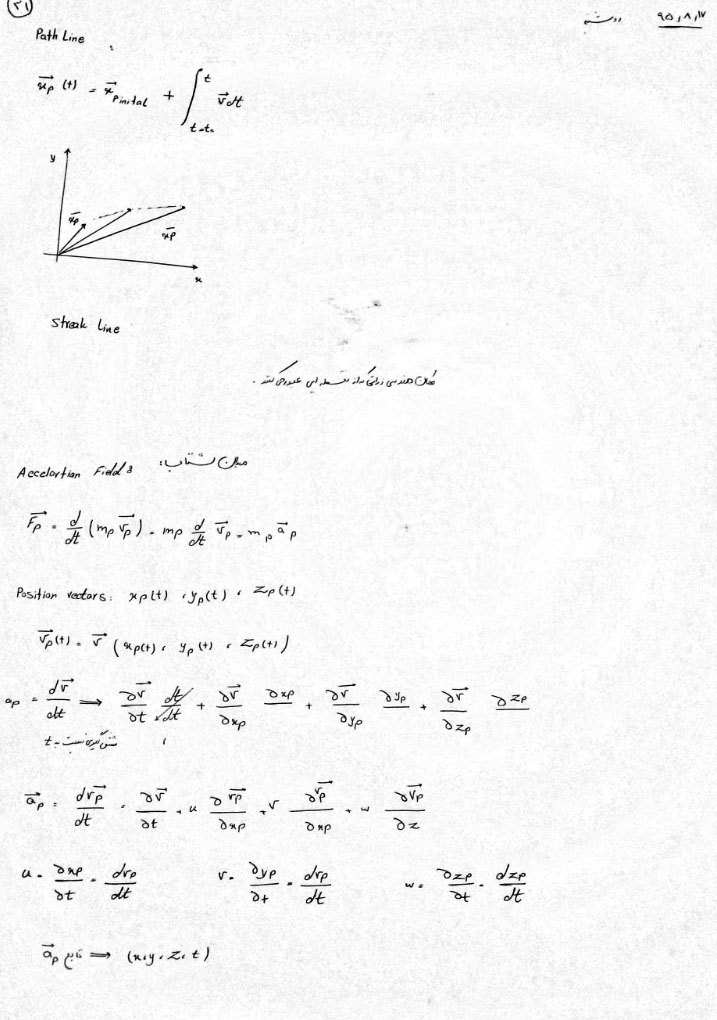 (۲۱)
دوشنبه ۹۵,۸,۱۷
Path Line :
x⃗p (t) = x⃗pinital + ∫_{t=t₀}^{t} v⃗dt
y
x⃗p
x⃗p
x
Streak Line
مکان هندسی ذراتی که از نقطه ای عبور می کنند .
Accelortion Field : میدان شتاب :
F⃗p = d/dt (mp v⃗p) = mp d/dt v⃗p = mp a⃗p
Position vectors: xp(t) , yp(t) , zp(t)
v⃗p(t) = v⃗ (xp(t), yp(t), zp(t))
ap = dv⃗/dt ⟹ ∂v⃗/∂t dt/dt + ∂v⃗/∂xp ∂xp + ∂v⃗/∂yp ∂yp + ∂v⃗/∂zp ∂zp
مشتق گیری نسبت به t 1
a⃗p = dv⃗p/dt = ∂v⃗/∂t + u ∂v⃗p/∂xp + v ∂v⃗p/∂xp + w ∂v⃗p/∂z
u = ∂xp/∂t = drp/dt v = ∂yp/∂t = drp/dt w = ∂zp/∂t = dzp/dt
a⃗p تابع ⟹ (x,y,z,t)